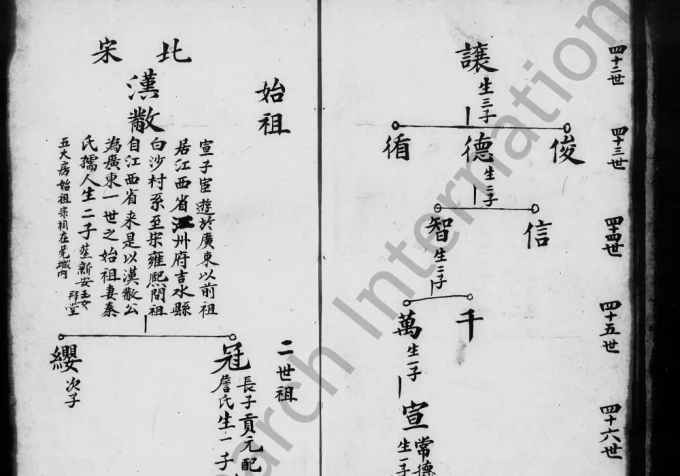 四十二世
讓
生三子
四十三世
俊
德
生二子
循
四十四世
信
智
生二子
四十五世
千
萬
生一子
四十六世
宣
常德
生一子
始祖
北宋
漢散
宣子宦遊於廣東以前祖
居江西省江州府吉水縣
白沙村系至宋雍熙間祖
自江西省來是以漢散公
為廣東一世之始祖妻秦
氏孺人生二子
五大房始祖
二世祖
冠
長子貢元配
詹氏生一子
纓
次子
arch Internation